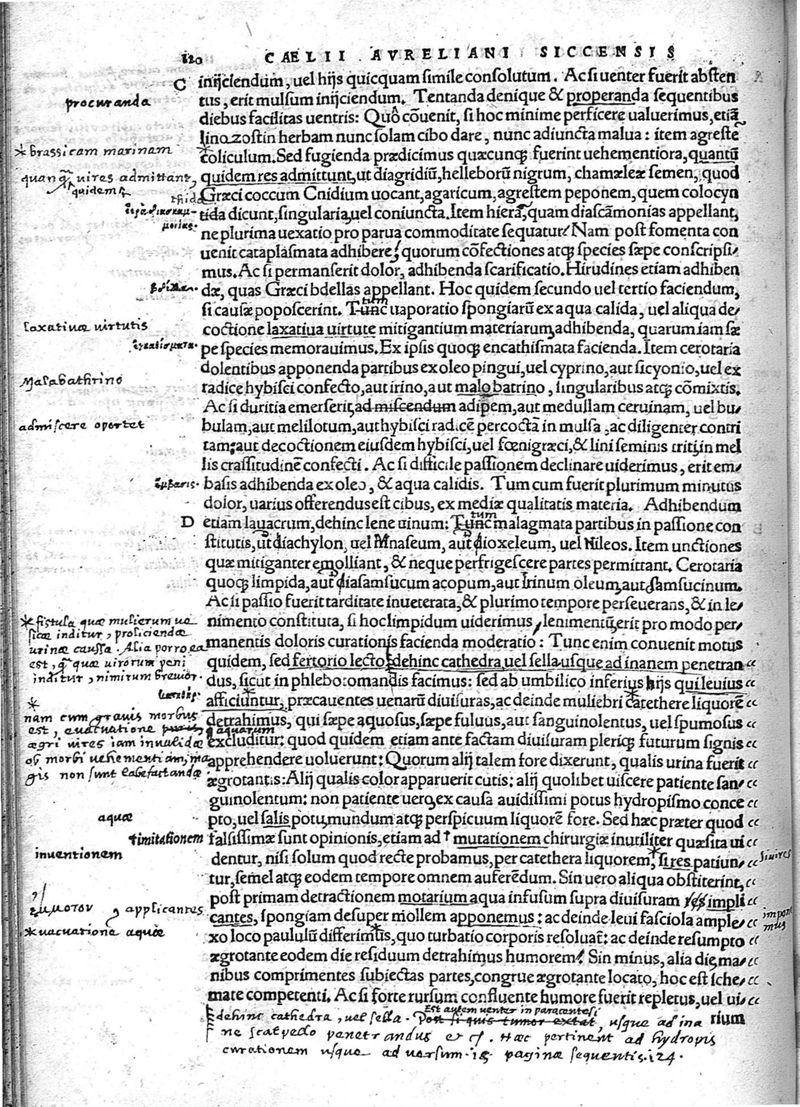 120 CAELII AVRELIANI SICCENSIS
C inijciendum, uel hijs quicquam simile consolutum. Ac si uenter fuerit absten
procuranda
tus, erit mulsum inijciendum. Tentanda denique & properanda sequentibus
diebus facilitas uentris: Quô cõuenit, si hoc minime perficere ualuerimus, etiã
linozostin herbam nunc solam cibo dare, nunc adiuncta malua: item agreste
* brassicam marinam
coliculum. Sed fugienda prædicimus quæcunq; fuerint uehementiora, quantũ
quanq; uires admittant,
quidem res admittunt, ut diagridiũ, helleborũ nigrum, chamæleæ semen, quod
Græci coccum Cnidium uocant, agaricum, agrestem peponem, quem colocyn
thida
tida dicunt, singularia, uel coniuncta. Item hierã, quam diascãmonias appellant,
ne plurima uexatio pro parua commoditate sequatur. Nam post fomenta con
uenit cataplasmata adhibere, quorum cõfectiones atq; species sæpe conscripsi/
mus. Ac si permanserit dolor, adhibenda scarificatio. Hirudines etiam adhiben
dæ, quas Græci bdellas appellant. Hoc quidem secundo uel tertio faciendum,
si causæ poposcerint. Tunc uaporatio spongiarũ ex aqua calida, uel aliqua de/
tum
laxatiuæ uirtutis
coctione laxatiua uirtute mitigantium materiarum, adhibenda, quarum iam sæ
pe species memorauimus. Ex ipsis quoq; encathismata facienda. Item cerotaria
dolentibus apponenda partibus ex oleo pingui, uel cyprino, aut sicyonio, uel ex
Malabathrino
radice hybisci confecto, aut irino, aut malobatrino, singularibus atq; cõmixtis.
Ac si duritia emerserit, admiscendum adipem, aut medullam ceruinam, uel bu/
admiscere oportet
bulam, aut melilotum, aut hybisci radicẽ percoctã in mulsa, ac diligenter contri
tam; aut decoctionem eiusdem hybisci, uel fœnigræci, & lini seminis triti, in mel
lis crassitudinẽ confecti. Ac si difficile passionem declinare uiderimus, erit em/
basis adhibenda ex oleo, & aqua calidis. Tum cum fuerit plurimum minutus
dolor, uarius offerendus est cibus, ex mediæ qualitatis materia. Adhibendum
D etiam lauacrum, dehinc lene uinum: Tunc malagmata partibus in passione con
tum
stitutis, ut diachylon, uel Mnaseum, aut dioxeleum, uel Nileos. Item unctiones
quæ mitiganter emolliant, & neque perfrigescere partes permittant. Cerotaria
quoq; limpida, aut diasamsucum acopum, aut Irinum oleum, aut samsucinum.
Ac si passio fuerit tarditate inueterata, & plurimo tempore perseuerans, & in le/
nimento constituta, si hoc limpidum uiderimus, lenimentũ, erit pro modo per/
* fistula quæ mulierum ue
sicæ inditur, proliciendæ
urinæ caussa. Alia porro ea
est, quæ uirorum peni
inditur, nimirum breuior.
manentis doloris curationis facienda moderatio: Tunc enim conuenit motus
quidem, sed fertorio lecto, dehinc cathedra, uel sella usque ad inanem penetran
dus, sicut in phlebotomandis facimus: sed ab umbilico inferius hijs qui leuius
afficiuntur, præcauentes uenarũ diuisuras, ac deinde muliebri catethere liquorẽ
*
nam cum grauis morbus
est, euacuatione aquarum
ægri uires iam inualidæ
ob morbi uehementiam, ma
gis non sunt labefactandæ
detrahimus, qui sæpe aquosus, sæpe fuluus, aut sanguinolentus, uel spumosus
excluditur: quod quidem etiam ante factam diuisuram pleriq; futurum signis
apprehendere uoluerunt: Quorum alij talem fore dixerunt, qualis urina fuerit
ægrotantis: Alij qualis color apparuerit cutis: alij quolibet uiscere patiente san/
guinolentum: non patiente uero, ex causa auidissimi potus hydropismo conce
aquæ
pto, uel salis potu, mundum atq; perspicuum liquorẽ fore. Sed hæc præter quod
†imitationem
falsissimæ sunt opinionis, etiam ad † mutationem chirurgiæ inutiliter quæsita ui
inuentionem
dentur, nisi solum quod recte probamus, per catethera liquorem, si res patiun/
si uires
tur, semel atq; eodem tempore omnem auferendum. Sin uero aliqua obstiterint,
post primam detractionem motarium aqua infusum supra diuisuram impli
ἔμμοτον applicantes
cantes, spongiam desuper mollem apponemus: ac deinde leui fasciola ample/
* uacuatione aquæ
xo loco paululũ differimus, quo turbatio corporis resoluat: ac deinde resumpto
ægrotante eodem die residuum detrahimus humorem. Sin minus, alia die, ma/
nibus comprimentes subiectas partes, congrue ægrotante locato, hoc est sche/
mate competenti. Ac si forte rursum confluente humore fuerit repletus, uel ui/
rium
dehinc cathedra, uel sella. Est autem uenter in paracentesi
Post si quis tumor extat, usque ad ina
ne scalpello penetrandus &c. Hæc pertinent ad hydropis
curationem usque ad uersum 18 paginæ sequentis 124.